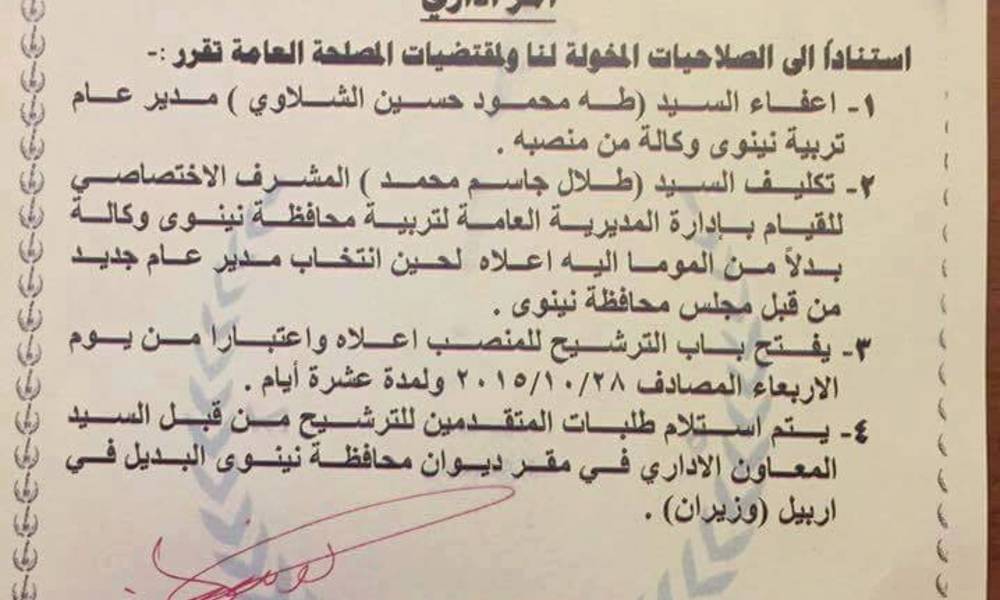 امر اداري
استناداً الى الصلاحيات المخولة لنا ولمقتضيات المصلحة العامة تقرر :-
١- اعفاء السيد (طه محمود حسين الشلاوي ) مدير عام
تربية نينوى وكالة من منصبه .
٢- تكليف السيد (طلال جاسم محمد ) المشرف الاختصاصي
للقيام بإدارة المديرية العامة لتربية محافظة نينوى وكالة
بدلاً من الموما اليه اعلاه لحين انتخاب مدير عام جديد
من قبل مجلس محافظة نينوى .
٣- يفتح باب الترشيح للمنصب اعلاه واعتبارا من يوم
الاربعاء المصادف ٢٠١٥/١٠/٢٨ ولمدة عشرة أيام .
٤- يتم استلام طلبات المتقدمين للترشيح من قبل السيد
المعاون الاداري في مقر ديوان محافظة نينوى البديل في
اربيل (وزيران) .